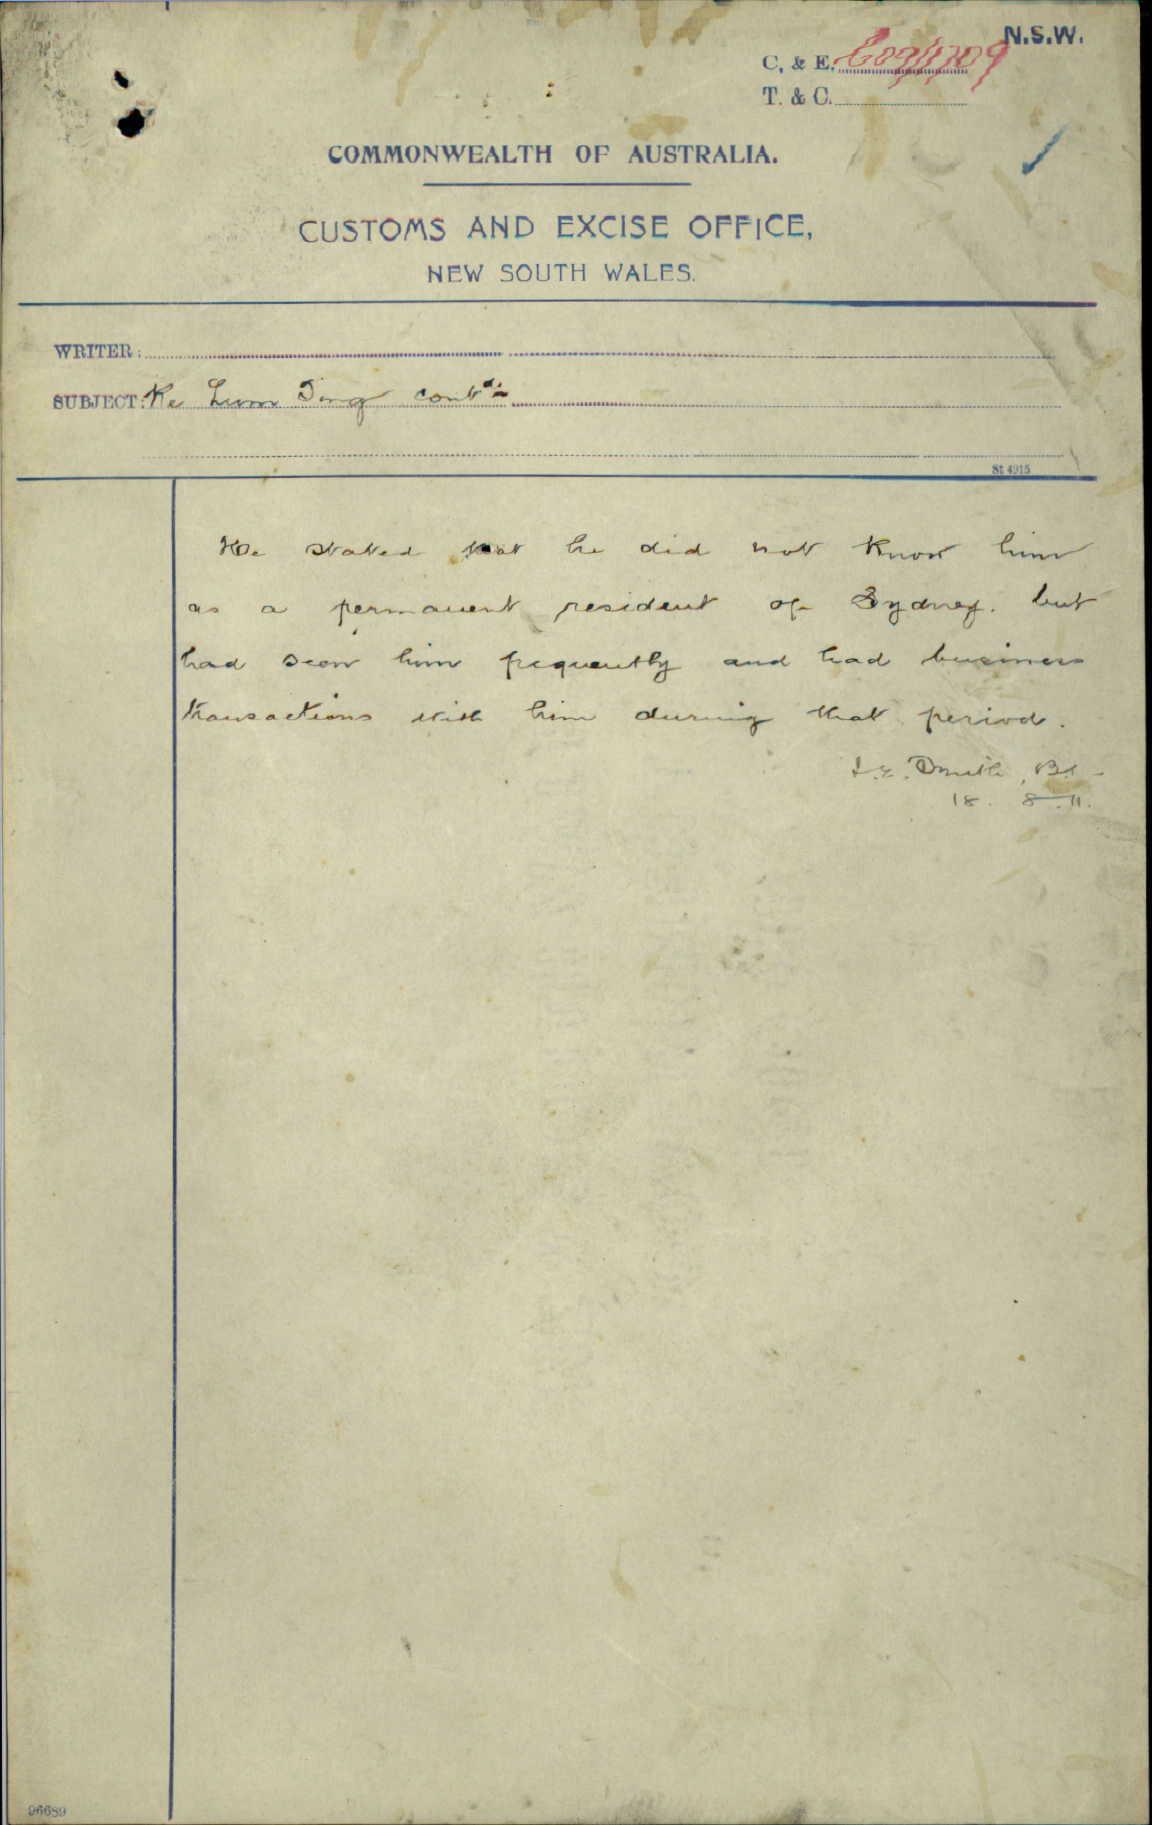 N.S.W.
C. & E.
T. & C.
COMMONWEALTH OF AUSTRALIA.
CUSTOMS AND EXCISE OFFICE,
NEW SOUTH WALES.
WRITER:
SUBJECT: Re Lum Ting contd:-
St 4915
He stated that he did not know him
as a permanent resident of Sydney. but
had seen him frequently and had business
transactions with him during that period.
Smith
18. 8. 11.
96689